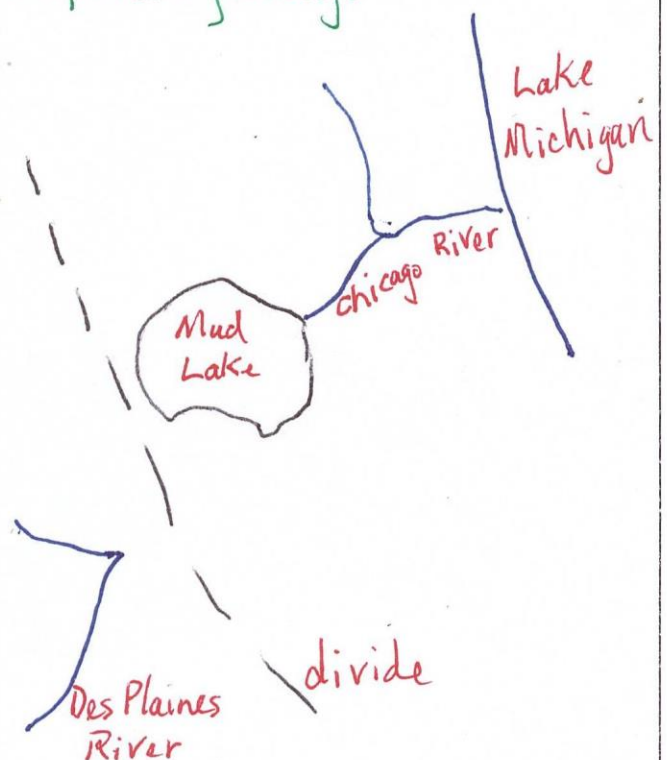 Lake
Michigan
River
Chicago
Mud
Lake
divide
Des Plaines
River